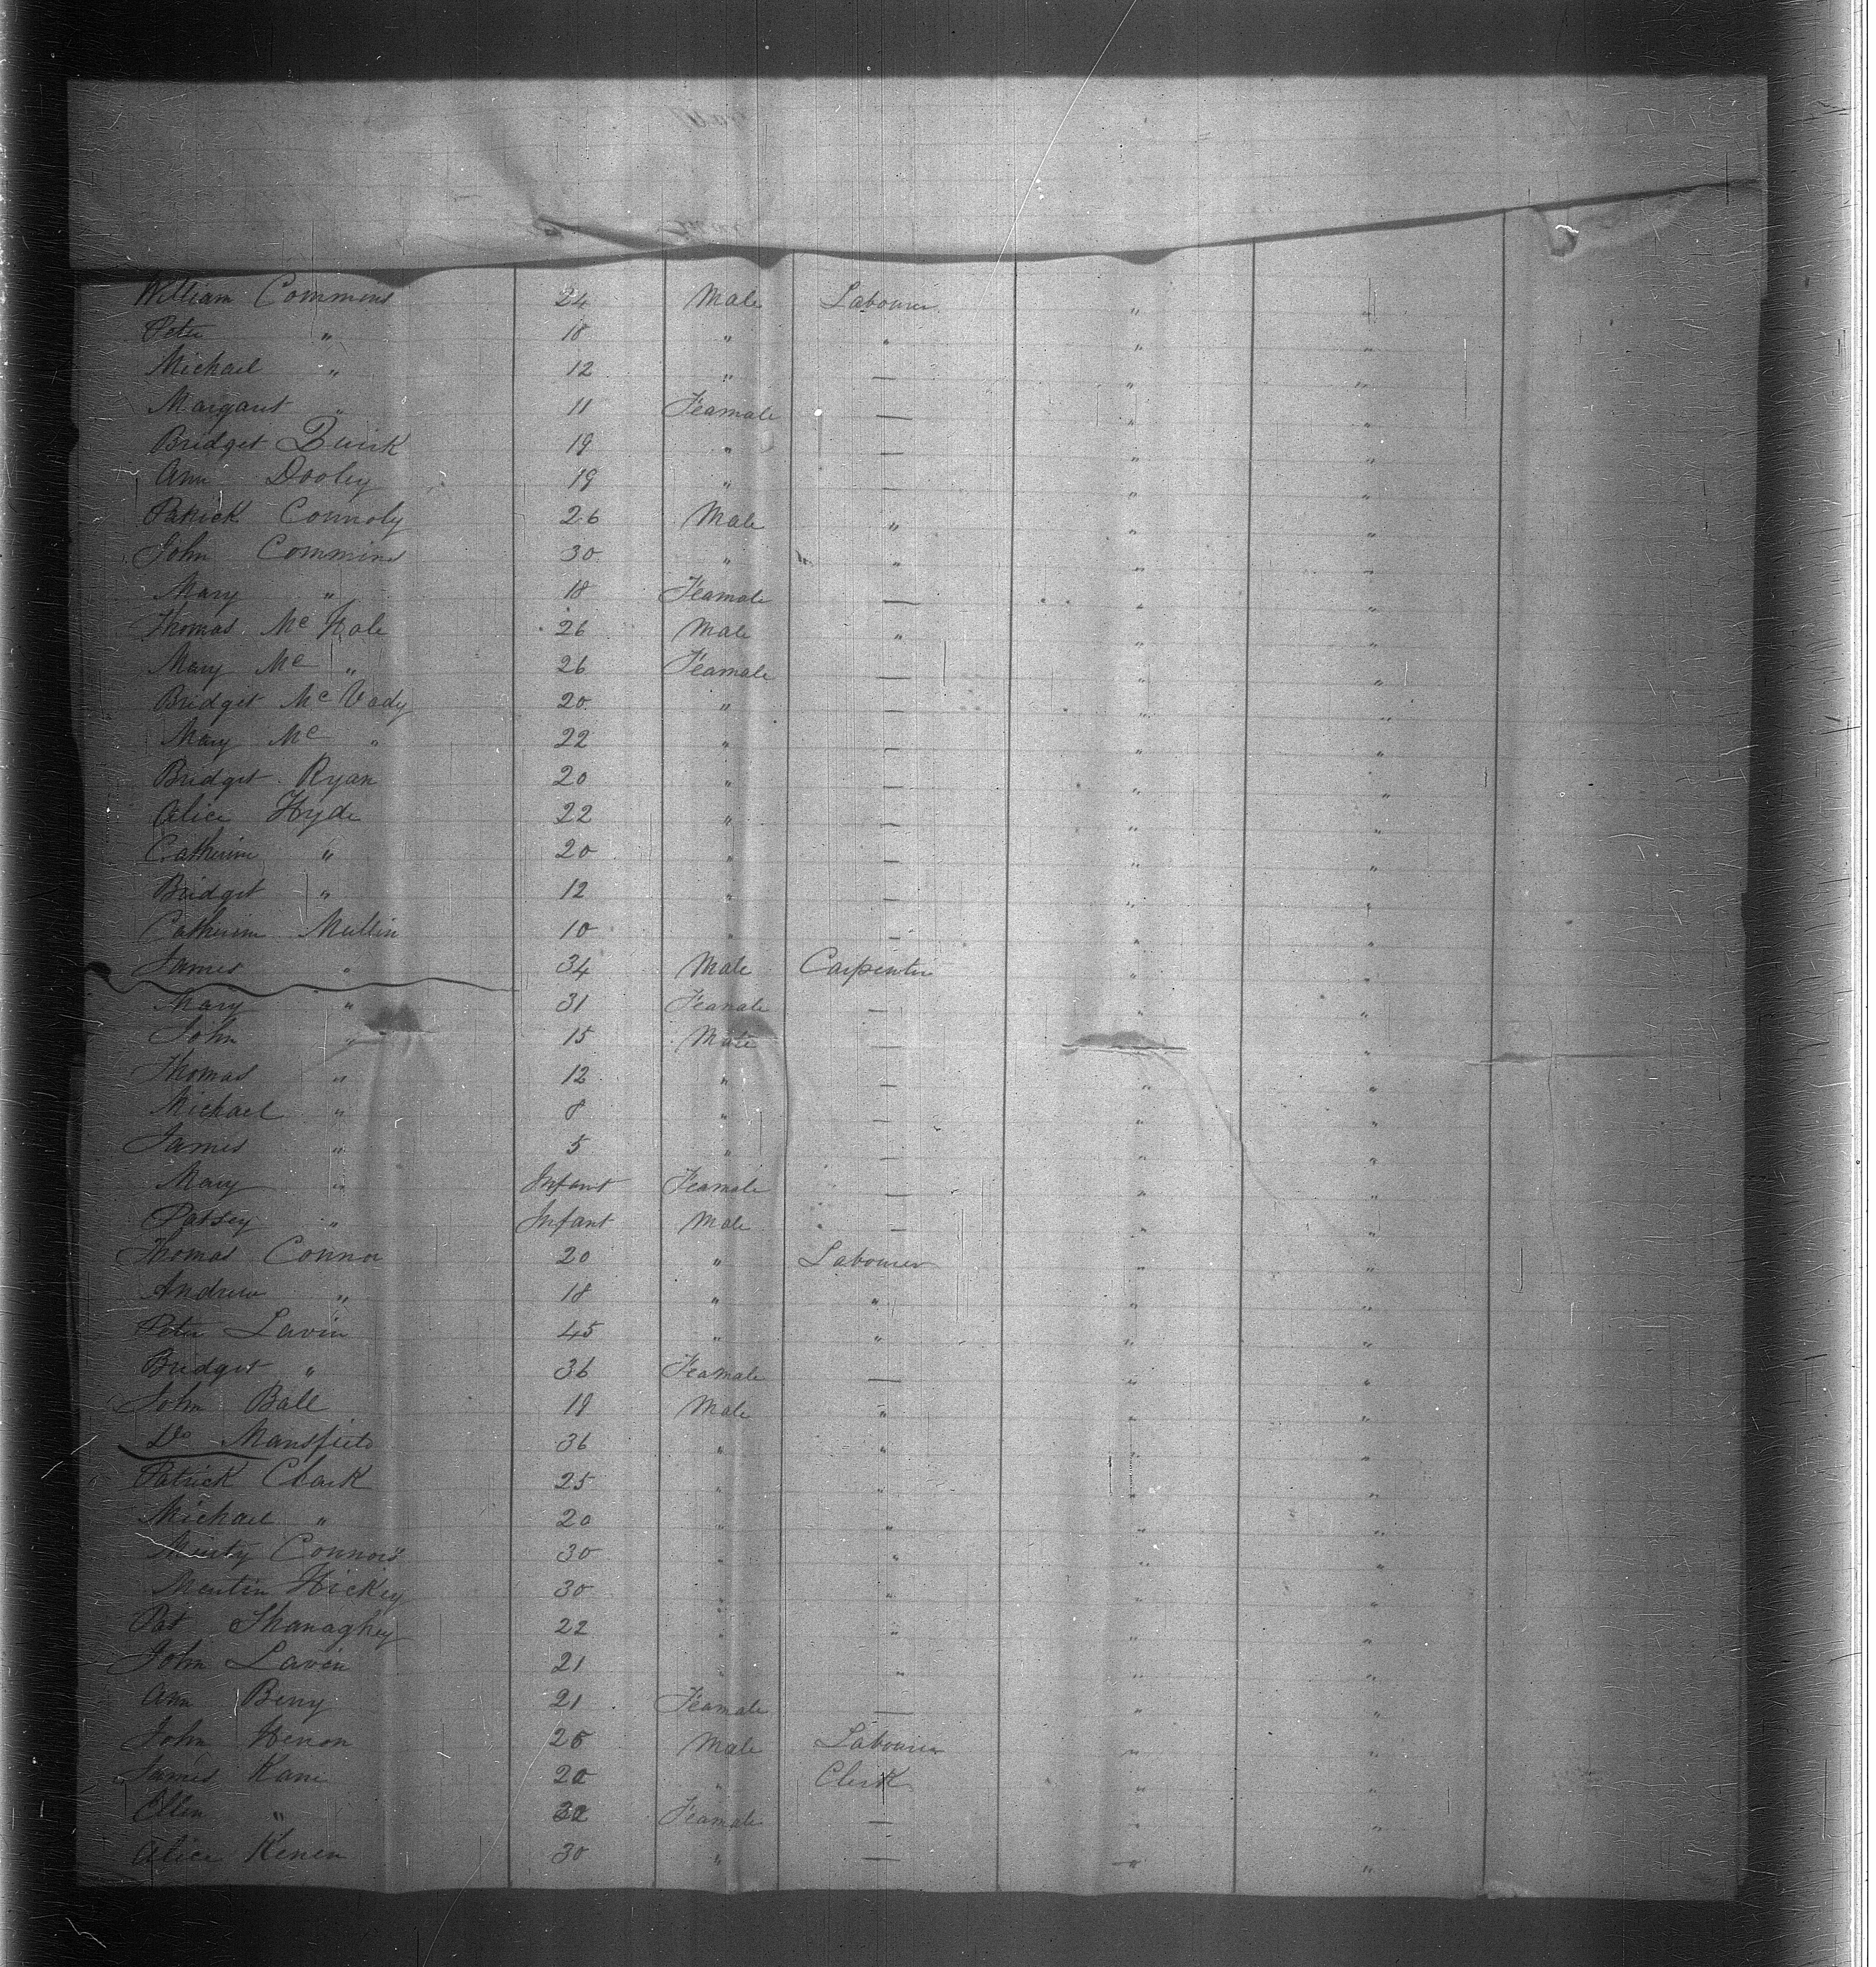 William Commins 24 Male Labourer " "
Peter " 18 " " " "
Michael " 12 " — " "
Margaret " 11 Feamale — " "
Bridget Quirk 19 " — " "
Ann Dooley 19 " — " "
Patrick Connoly 26 Male " " "
John Commins 30 " " " "
Mary " 18 Feamale — " "
Thomas Mc Hale 26 Male " " "
Mary Mc " 26 Feamale — " "
Bridget Mc Vady 20 " — " "
Mary Mc " 22 " — " "
Bridget Ryan 20 " — " "
Alice Hyde 22 " — " "
Catherine " 20 " — " "
Bridget " 12 " — " "
Catherine Mullin 10 " — " "
James " 34 Male Carpenter " "
Mary " 31 Feamale — " "
John " 15 Male — " "
Thomas " 12 " — " "
Michael " 8 " — " "
James " 5 " — " "
Mary " Infant Feamale — " "
Patsey " Infant Male — " "
Thomas Connor 20 " Labourer " "
Andrew " 18 " " " "
Peter Lavin 45 " " " "
Bridget " 36 Feamale — " "
John Ball 19 Male " " "
Do Mansfield 36 " " " "
Patrick Clark 25 " " " "
Michael " 20 " " " "
Connors 30 " " " "
Hickey 30 " " " "
Pat Shanaghey 22 " " " "
John Lavin 21 " " " "
Ann Berry 21 Feamale — " "
John Henon 25 Male Labourer " "
James Kane 20 " Clerk " "
Ellen " Feamale — " "
Alice Kenen 30 " — " "